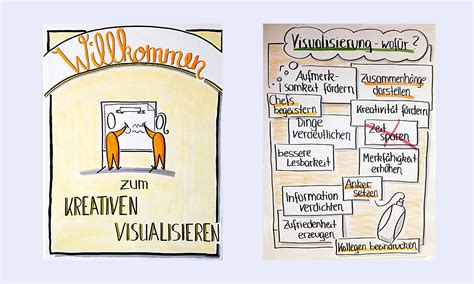 Willkommen
zum
KREATIVEN
VISUALISIEREN
Visualisierung - wofür?
Aufmerk-
samkeit fördern
Zusammenhänge
darstellen
Chefs
begeistern
Kreativität fördern
Dinge
verdeutlichen
Zeit
sparen
bessere
Lesbarkeit
Merkfähigkeit
erhöhen
Anker
setzen
Information
verdichten
Zufriedenheit
erzeugen
Kollegen beeindrucken